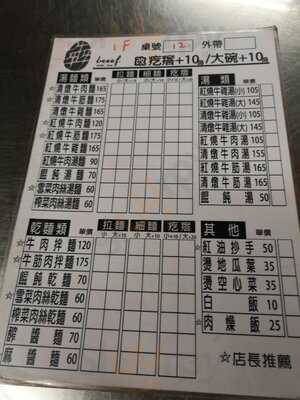 beeef
1F 桌號 12 外帶
疙瘩+10元/大碗+10元
湯麵類 單價 拉麵 細麵 疙瘩
☆清燉牛肉麵 165
☆清燉牛筋麵 175
清燉牛雜麵 165
☆紅燒牛肉麵 165
☆紅燒牛筋麵 175
紅燒牛雜麵 165
紅燒牛肉湯麵 90
餛飩湯麵 70
☆雪菜肉絲湯麵 60
榨菜肉絲湯麵 60
湯類 單價
紅燒牛雜湯(小) 105
紅燒牛雜湯(大) 145
清燉牛雜湯(小) 105
清燉牛雜湯(大) 145
紅燒牛肉湯 155
清燉牛肉湯 155
清燉牛筋湯 165
餛飩湯 50
乾麵類 單價 拉麵 細麵 疙瘩
☆牛肉拌麵 120
☆牛筋肉拌麵 175
餛飩乾麵 70
☆雪菜肉絲乾麵 60
榨菜肉絲乾麵 60
酢醬麵 70
麻醬麵 60
其他 單價
☆紅油抄手 50
燙地瓜葉 35
燙空心菜 35
白飯 10
☆肉燥飯 25
☆店長推薦